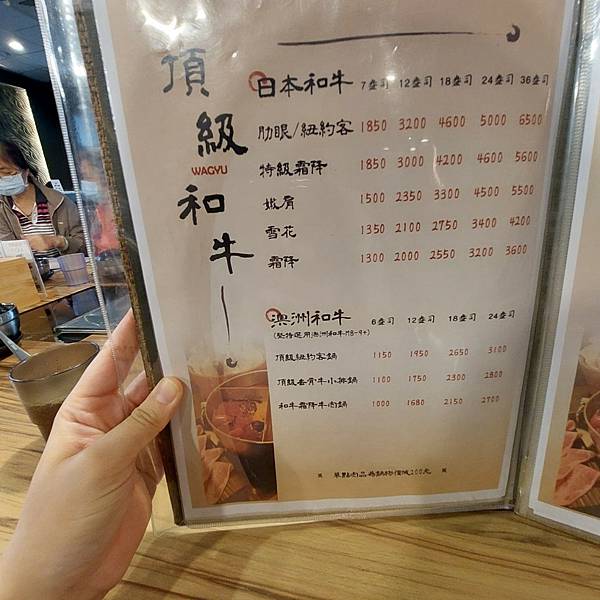 頂級和牛
WAGYU
日本和牛 7盎司 12盎司 18盎司 24盎司 36盎司
肋眼/紐約客 1850 3200 4600 5000 6500
特級霜降 1850 3000 4200 4600 5600
嫩肩 1500 2350 3300 4500 5500
雪花 1350 2100 2750 3400 4200
霜降 1300 2000 2550 3200 3600
澳洲和牛 6盎司 12盎司 18盎司 24盎司
(堅持選用澳洲和牛M8-9+)
頂級紐約客鍋 1150 1950 2650 3100
頂級去骨牛小排鍋 1100 1750 2300 2800
和牛霜降牛肉鍋 1000 1680 2150 2700
※ 單點肉品為鍋物價減200元 ※